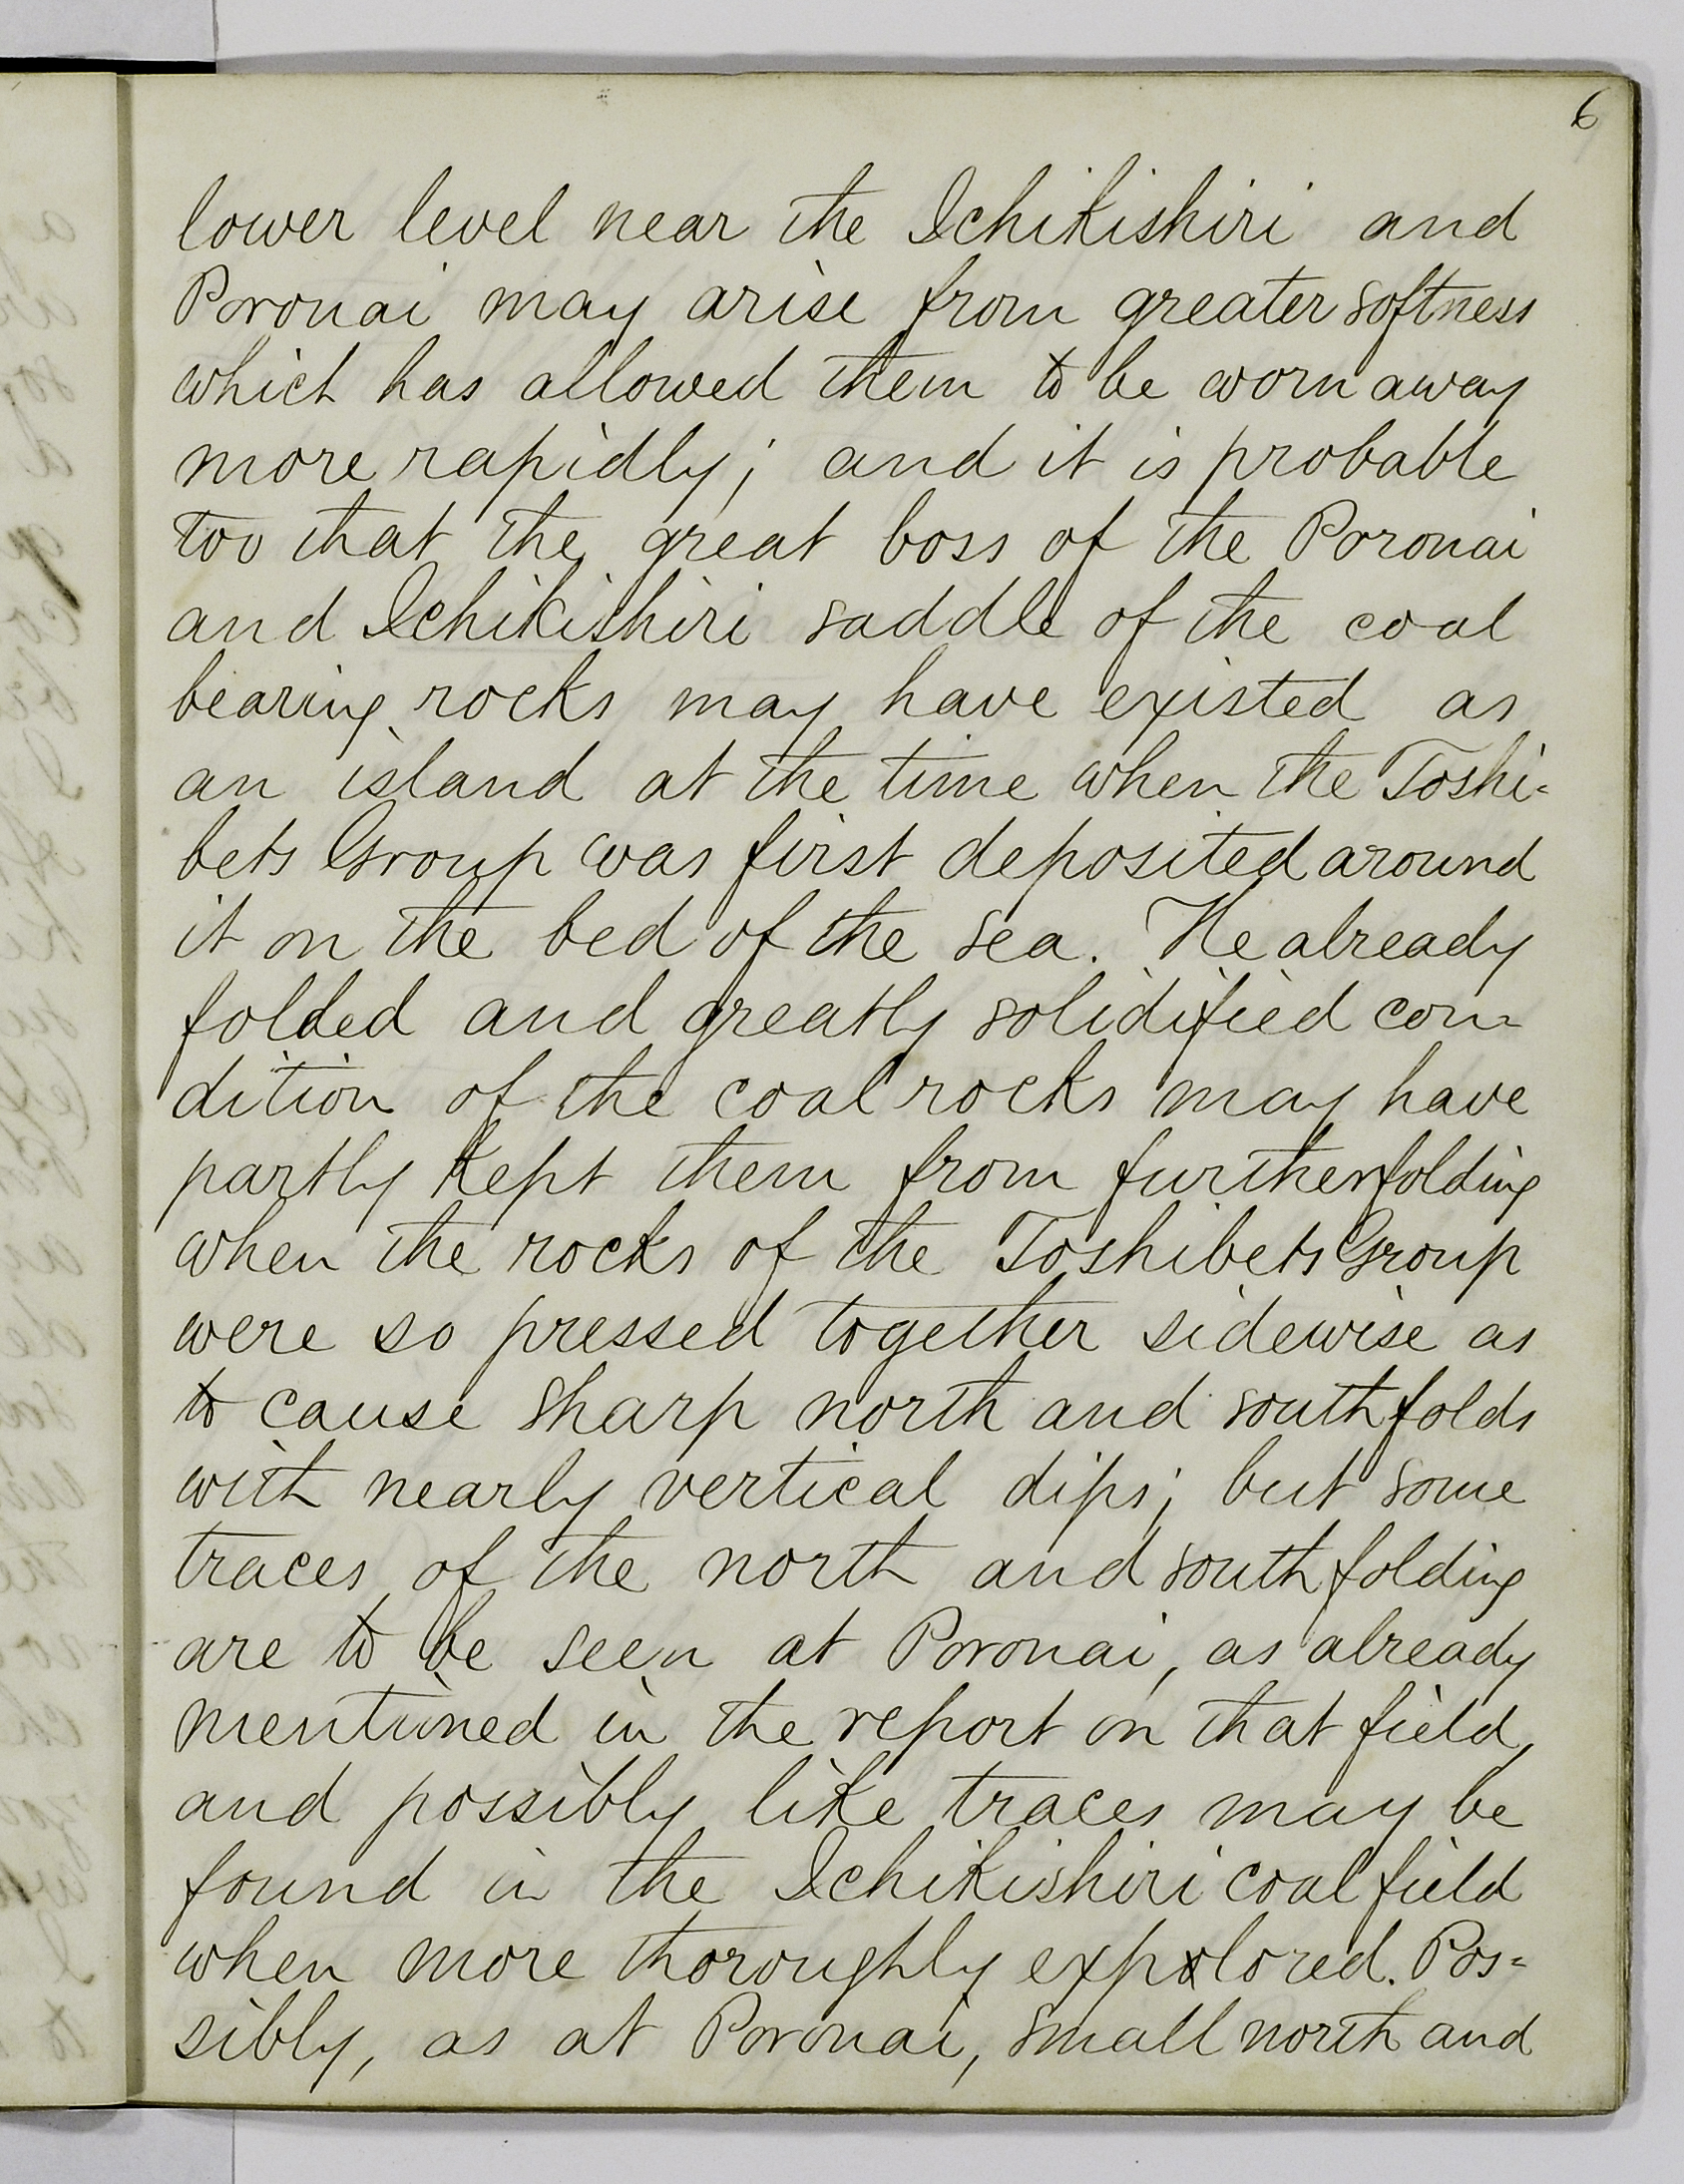 6
lower level near the Ichikishiri and
Poronai may arise from greater softness
which has allowed them to be worn away
more rapidly; and it is probable
too that the great boss of the Poronai
and Ichikishiri saddle of the coal
bearing rocks may have existed as
an island at the time when the Toshi-
bets Group was first deposited around
it on the bed of the sea. The already
folded and greatly solidified con-
dition of the coal rocks may have
partly kept them from further folding
when the rocks of the Toshibets Group
were so pressed together sidewise as
to cause sharp north and south folds
with nearly vertical dips; but some
traces of the north and south folding
are to be seen at Poronai, as already
mentioned in the report on that field,
and possibly like traces may be
found in the Ichikishiri coal field
when more thoroughly explored. Pos=
sibly, as at Poronai, small north and